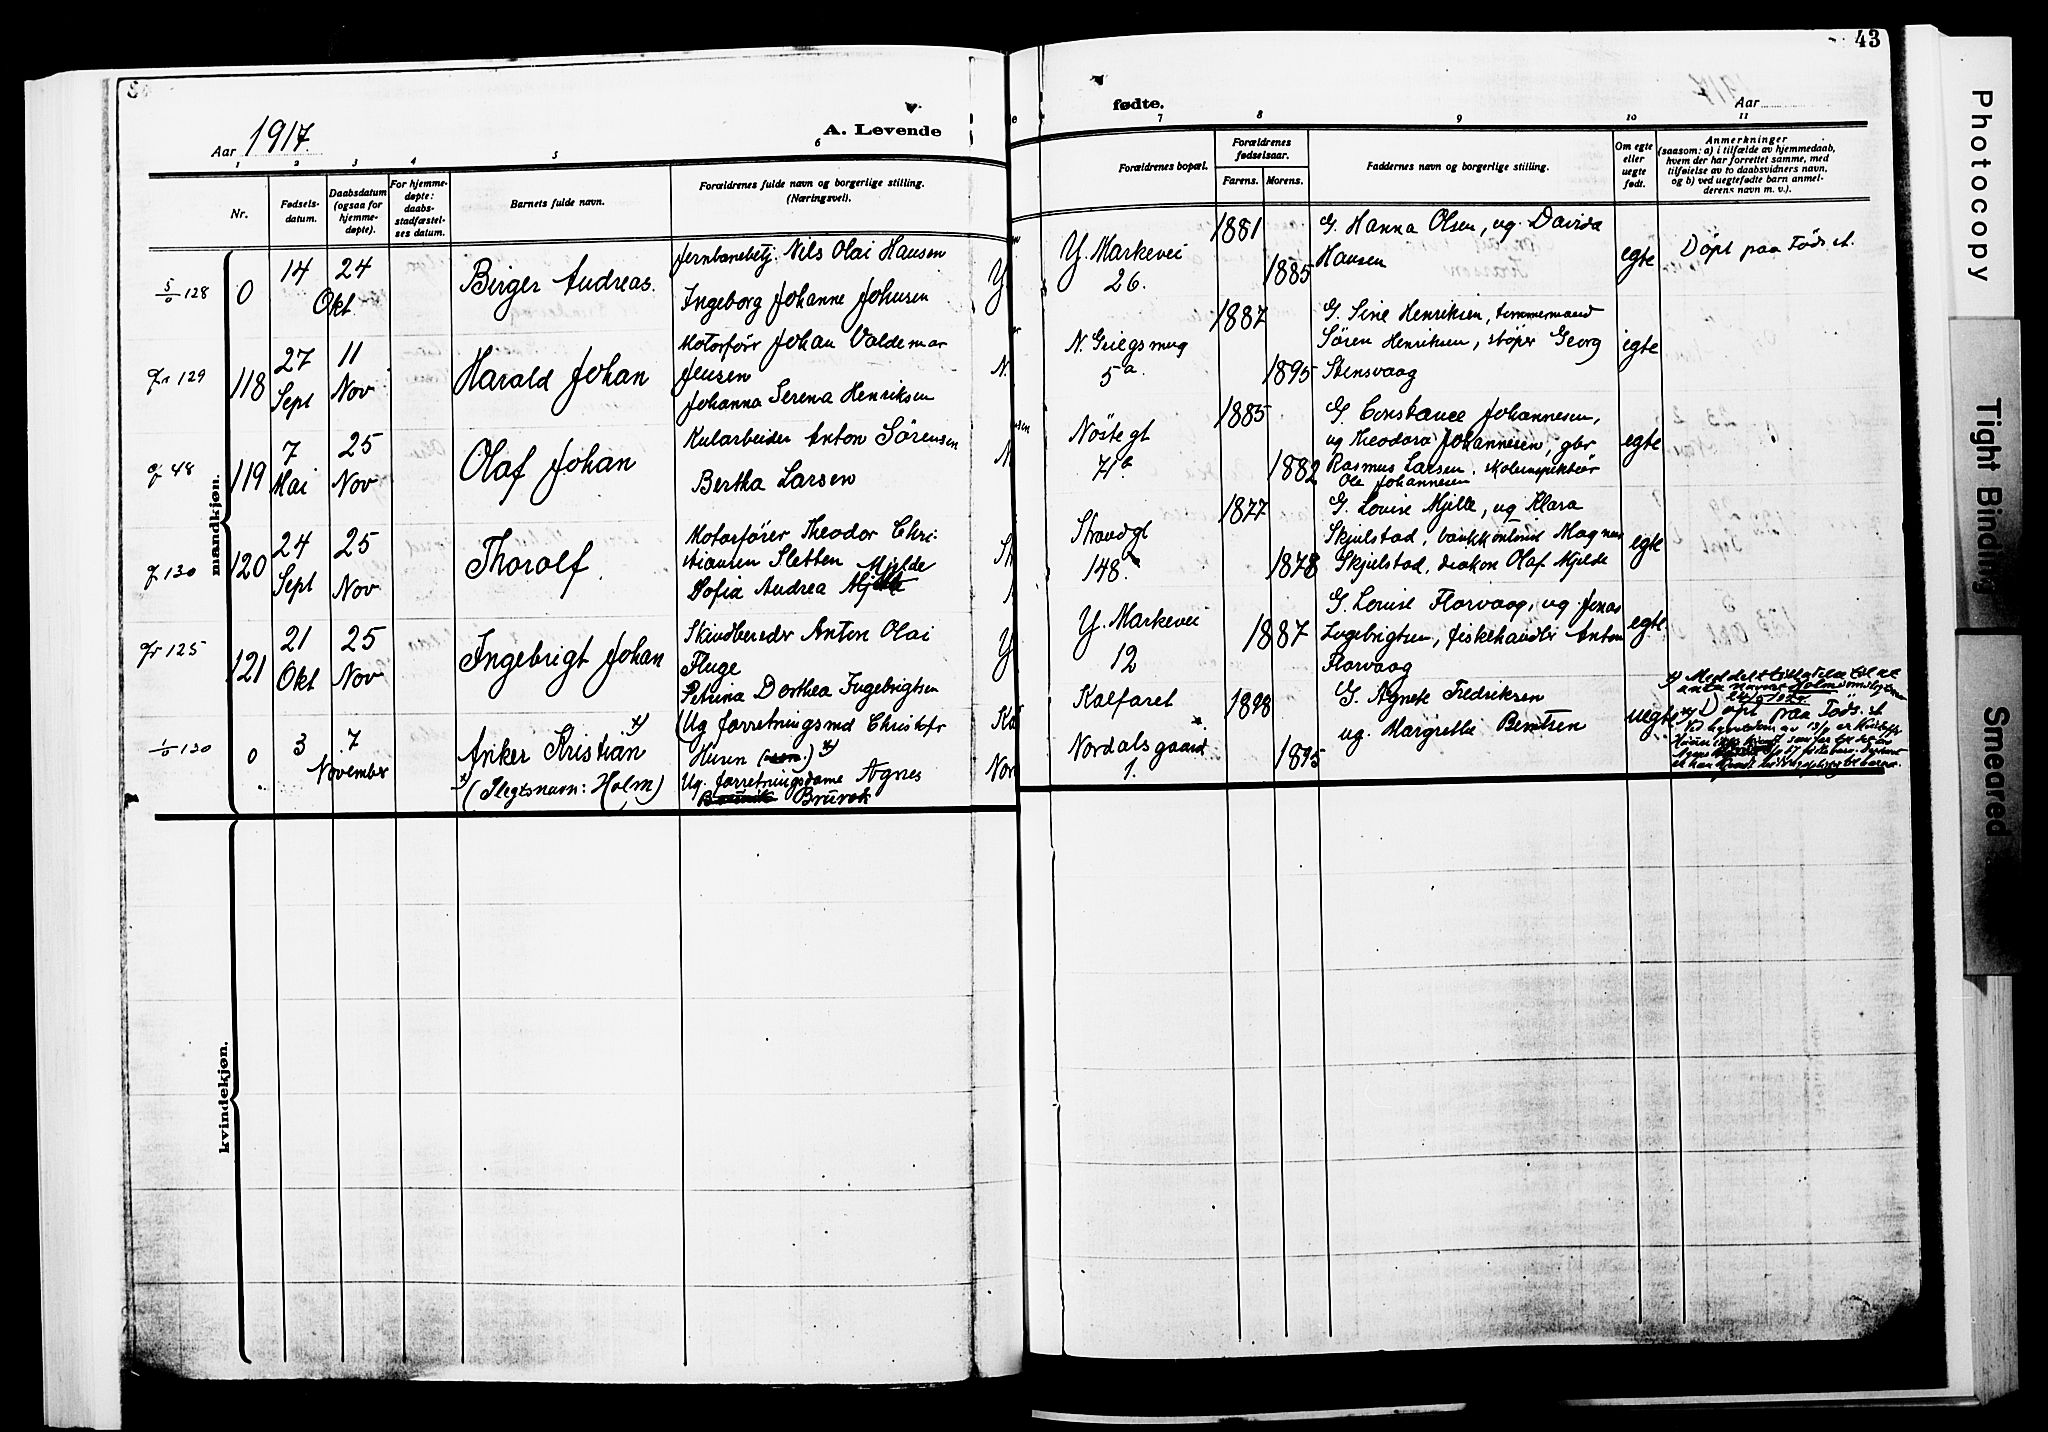 43
Aar 1917.
A. Levende
fødte.
Aar
1 2 3 4 5 6
7 8 9 10 11
Nr.
Fødsels-
datum.
Daabsdatum
(ogsaa for
hjemme-
døpte).
For hjemme-
døpte:
daabs-
stadfæstel-
ses datum.
Barnets fulde navn.
Forældrenes fulde navn og borgerlige stilling.
(Næringsvei).
Forældrenes bopæl.
Forældrenes
fødselsaar.
Farens. Morens.
Faddernes navn og borgerlige stilling.
Om egte
eller
uegte
født.
Anmerkninger
(saasom: a) i tilfælde av hjemmedaab,
hvem der har forrettet samme, med
tilføielse av to daabsvidners navn,
og b) ved uegtefødte barn anmel-
derens navn m. v.).
mandkjøn.
5/128 0
14 24
Okt.
Birger Andreas.
Jernbanebetj. Nils Olai Hansen
Ingeborg Johanne Johnsen
Y. Markevei
26.
1881
1885
G. Hanna Olsen, ug. Davida
Hansen
egte
Døpt paa Föds. st.
129 118
27 11
Sept Nov
Harald Johan
Motorförr Johan Valdemar
Jensen
Johanna Serena Henriksen
N. Griegsmug
5a.
1887
1895
G. Sine Henriksen, tømmermand
Sören Henriksen, støper Georg
Stensvaag
egte
48 119
7 25
Mai Nov
Olaf Johan
Kularbeider Anton Sörensen
Bertha Larsen
Nöstegt
71b
1885
1882
G. Constance Johannesen,
ug Theodora Johannesen, gbr
Rasmus Larsen, skoleinspektör
Ole Johannesen
egte
130 120
24 25
Sept Nov
Thorolf
Motorförer Theodor Chri-
stiansen Sletten
Sofia Andrea Mjelde
Strandgt
148.
1877
1878
G. Louise Mjelde, ug Klara
Skjulstad, Magnus
Skjelstad, diakon Olaf Mjelde
egte
125 121
21 25
Okt Nov
Ingebrigt Johan
Skindbereder Anton Olai
Fluge
Petrina Dorthea Ingebrigtsen
Y. Markevei
12
1887
G. Louise Florvaag, ug. Jonas
Ingebrigtsen, fiskehandler Anton
Florvaag
egte
130 0
3 7
November
Anker Kristian x)
x) (Slegtsnavn: Holm)
(Ug forretningsmd Christofer
Husen x)
Ug. forretningsdame Agnes
Brurok
Kalfaret
Nordalsgaard
1.
1898
1895
G. Agnete Fredriksen
ug. Margrethe Berntsen
uegte
Døpt paa Föds. st.
kvindekjøn.
Photocopy
Tight Binding
Smeared